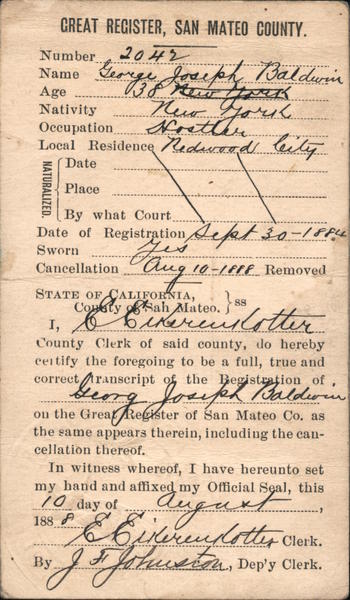 GREAT REGISTER, SAN MATEO COUNTY.
Number 2042
Name George Joseph Baldwin
Age 38 New York
Nativity New York
Occupation Hostler
Local Residence Redwood City
NATURALIZED.
Date
Place
By what Court
Date of Registration Sept 30-1884
Sworn Yes
Cancellation Aug 10-1888 Removed
STATE OF CALIFORNIA,
County of San Mateo. } ss
I, E Eikerenkotter
County Clerk of said county, do hereby
certify the foregoing to be a full, true and
correct transcript of the Registration of
Georg Joseph Baldwin
on the Great Register of San Mateo Co. as
the same appears therein, including the can-
cellation thereof.
In witness whereof, I have hereunto set
my hand and affixed my Official Seal, this
10 day of August,
1888, E Eikerenkotter Clerk.
By J F Johnston, Dep'y Clerk.